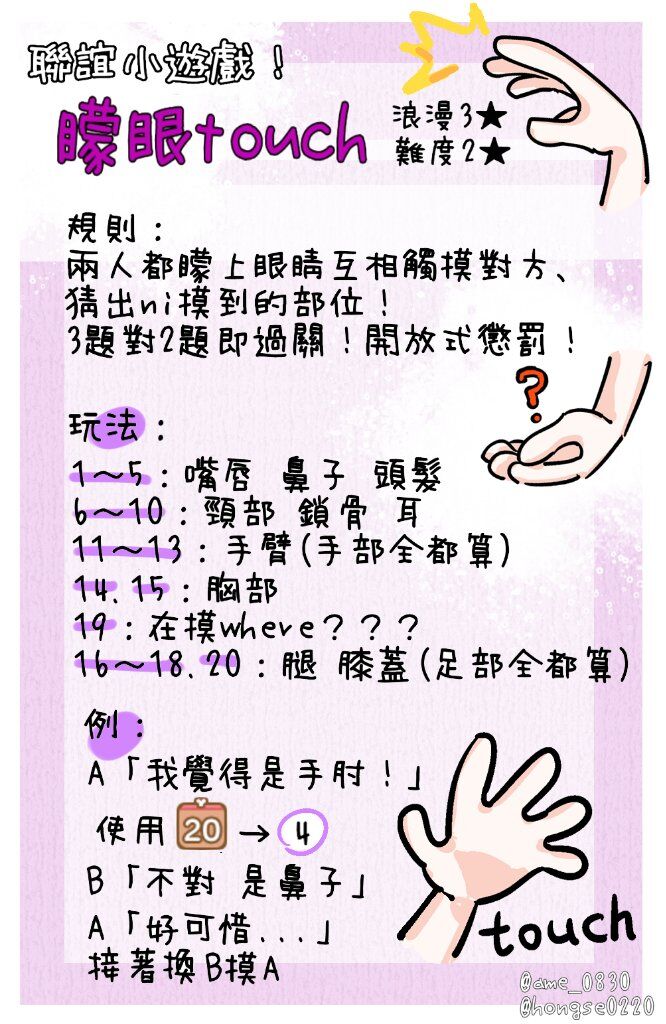 聯誼小遊戲！
矇眼touch
浪漫3★
難度2★
規則：
兩人都矇上眼睛互相觸摸對方、
猜出ni摸到的部位！
3題對2題即過關！開放式懲罰！
?
玩法：
1～5：嘴唇 鼻子 頭髮
6～10：頸部 鎖骨 耳
11～13：手臂(手部全都算)
14.15：胸部
19：在摸where？？？
16～18.20：腿 膝蓋(足部全都算)
例：
A「我覺得是手肘！」
使用 20 → 4
B「不對 是鼻子」
A「好可惜...」
接著換B摸A
touch
@ame_0830
@hongse0220